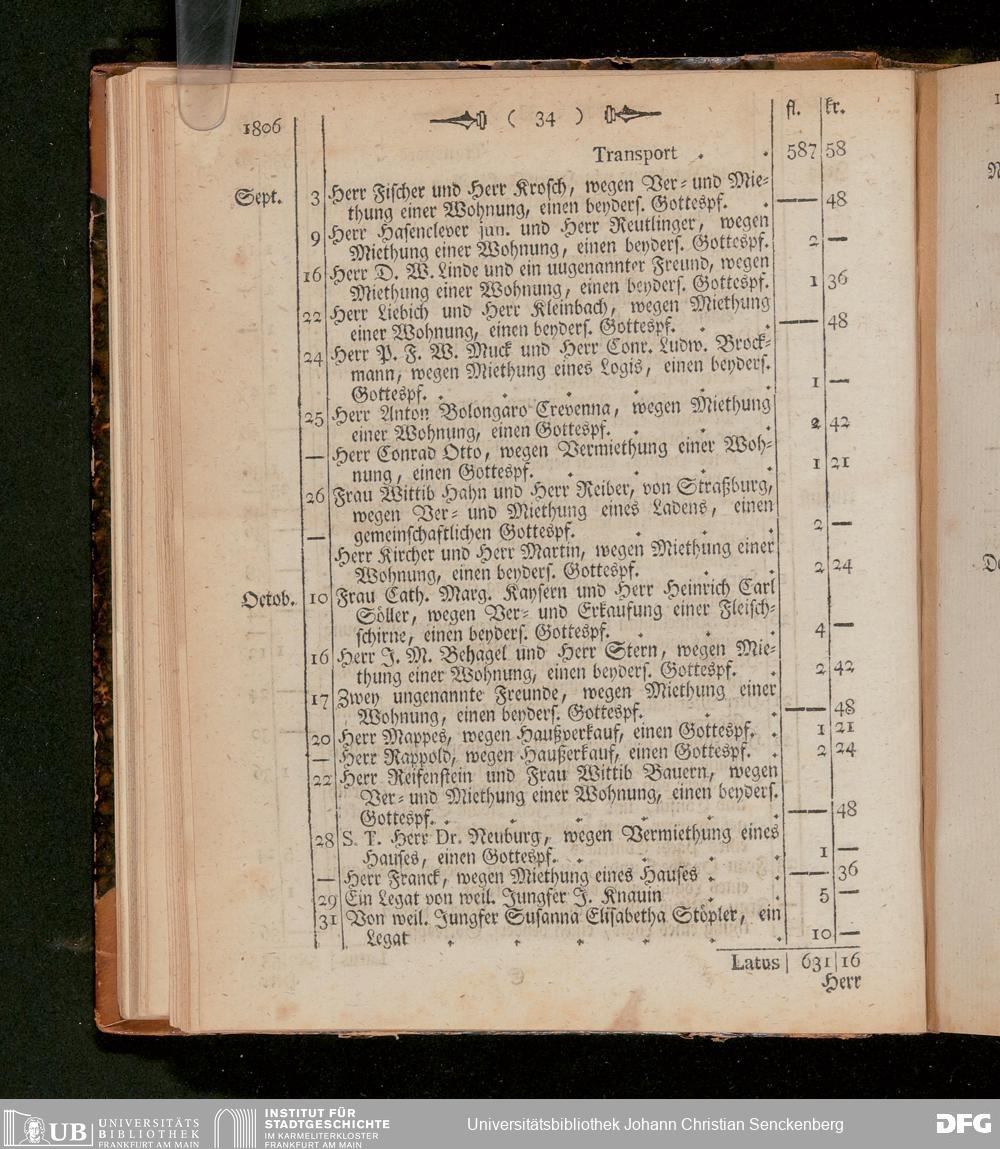 1806 ( 34 ) fl. kr.
Transport . . 587 58
Sept. 3 Herr Fischer und Herr Krosch, wegen Ver= und Mie=
thung einer Wohnung, einen beyders. Gottespf. . — 48
9 Herr Hasenclever jun. und Herr Reutlinger, wegen
Miethung einer Wohnung, einen beyders. Gottespf. 2 —
16 Herr D. W. Linde und ein uugenannter Freund, wegen
Miethung einer Wohnung, einen beyders. Gottespf. 1 36
22 Herr Liebich und Herr Kleinbach, wegen Miethung
einer Wohnung, einen beyders. Gottespf. . . — 48
24 Herr P. F. W. Muck und Herr Conr. Ludw. Brock=
mann, wegen Miethung eines Logis, einen beyders.
Gottespf. . . . . . 1 —
25 Herr Anton Bolongaro Crevenna, wegen Miethung
einer Wohnung, einen Gottespf. . . . 2 42
— Herr Conrad Otto, wegen Vermiethung einer Woh=
nung, einen Gottespf. . . . . 1 21
26 Frau Wittib Hahn und Herr Reiber, von Straßburg,
wegen Ver= und Miethung eines Ladens, einen
gemeinschaftlichen Gottespf. . . . 2 —
— Herr Kircher und Herr Martin, wegen Miethung einer
Wohnung, einen beyders. Gottespf. . . 2 24
Octob. 10 Frau Cath. Marg. Kaysern und Herr Heinrich Carl
Söller, wegen Ver= und Erkaufung einer Fleisch=
schirne, einen beyders. Gottespf. . . . 4 —
16 Herr J. M. Behagel und Herr Stern, wegen Mie=
thung einer Wohnung, einen beyders. Gottespf. . 2 42
17 Zwey ungenannte Freunde, wegen Miethung einer
Wohnung, einen beyders. Gottespf. . . — 48
20 Herr Mappes, wegen Haußverkauf, einen Gottespf. . 1 21
— Herr Rappold, wegen Haußerkauf, einen Gottespf. . 2 24
22 Herr Reifenstein und Frau Wittib Bauern, wegen
Ver= und Miethung einer Wohnung, einen beyders.
Gottespf. . . . . . — 48
28 S. T. Herr Dr. Neuburg, wegen Vermiethung eines
Hauses, einen Gottespf. . . . . 1 —
— Herr Franck, wegen Miethung eines Hauses . . — 36
29 Ein Legat von weil. Jungfer J. Knauin . . 5 —
31 Von weil. Jungfer Susanna Elisabetha Stöpler, ein
Legat . . . . . . 10 —
Latus 631 16
Herr
UB UNIVERSITÄTS
BIBLIOTHEK
FRANKFURT AM MAIN
INSTITUT FÜR
STADTGESCHICHTE
IM KARMELITERKLOSTER
FRANKFURT AM MAIN
Universitätsbibliothek Johann Christian Senckenberg
DFG